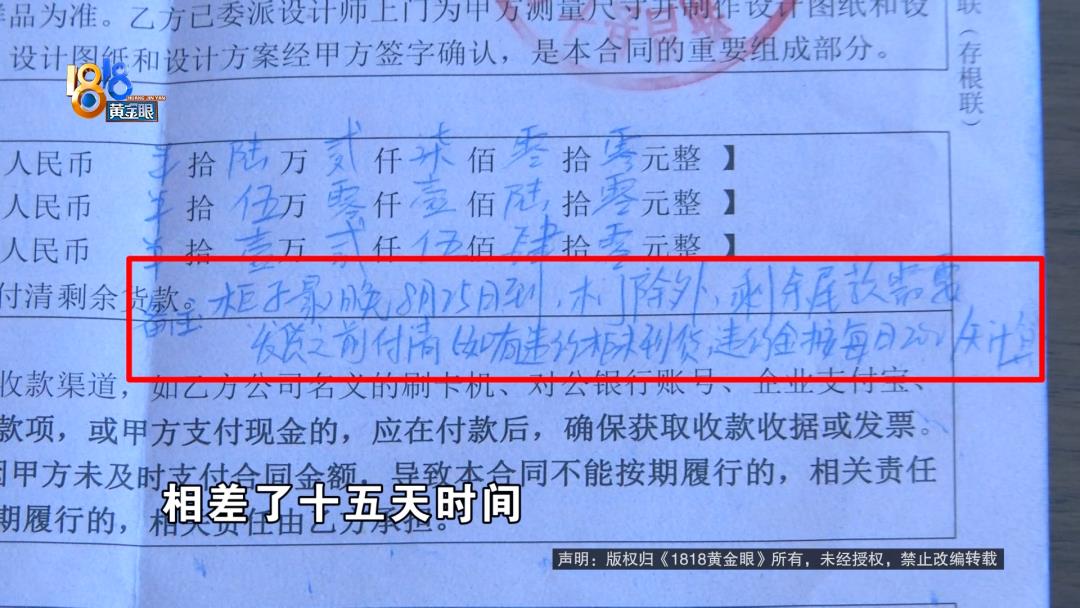 样品为准。乙方已委派设计师上门为甲方测量尺寸并制作设计图纸和设
设计图纸和设计方案经甲方签字确认，是本合同的重要组成部分。
联（存根联）
1818
HUANG JIN YAN
黄金眼
人民币 拾 陆 万 贰 仟 柒 佰 零 拾 零 元整 】
人民币 拾 伍 万 零 仟 壹 佰 陆 拾 零 元整 】
人民币 拾 壹 万 贰 仟 伍 佰 肆 拾 零 元整 】
付清剩余货款。
备注：柜子最晚8月25日到，木门除外，剩余尾款需要
发货之前付清（如有违约柜未到货，违约金按每日200/天计算
收款渠道，如乙方公司名义的刷卡机、对公银行账号、企业支付宝、
款项，或甲方支付现金的，应在付款后，确保获取收款收据或发票。
因甲方未及时支付合同金额，导致本合同不能按期履行的，相关责任
期履行的，相关责任由乙方承担。
相差了十五天时间
声明：版权归《1818黄金眼》所有，未经授权，禁止改编转载